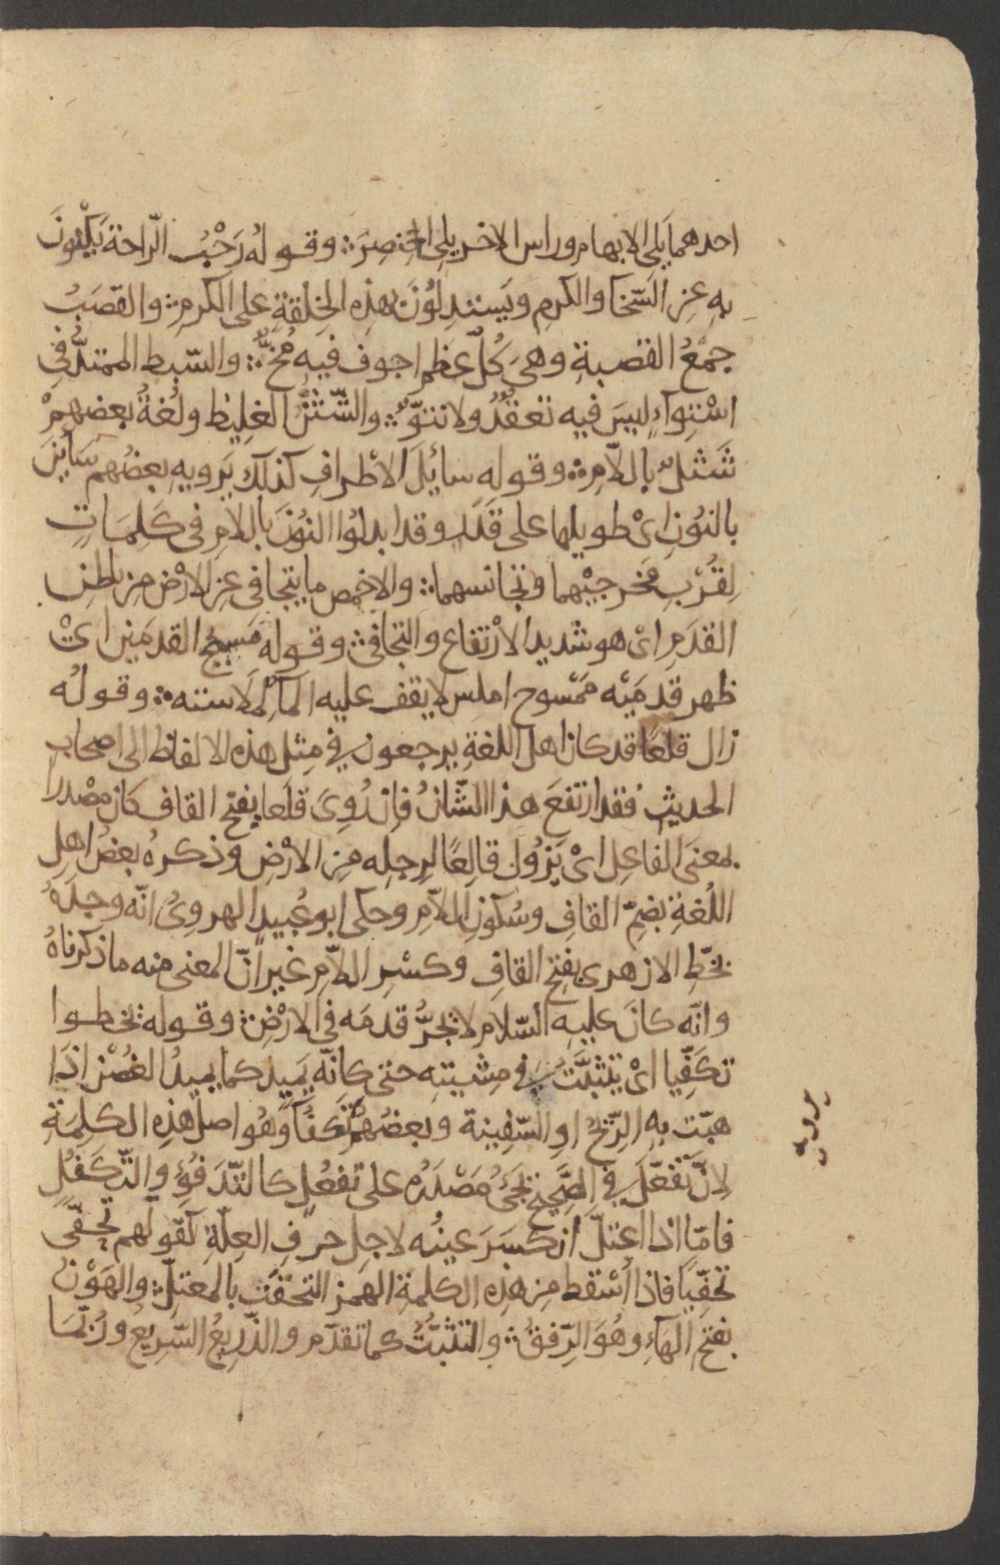 احدهما يلى الابهام وراس الاخر يلى الخنصر ؞ وقوله رَحْبُ الرّاحة يَكْنونَ
بهِ عن السّخا والكرم ويَستدِلوُنَ بهذه الخِلقةِ على الكرمِ ؞ والقصَبُ
جمْعُ القصبةِ وهىَ كُلّ عظم اجوف فيه مُخّ ؞ والسّبط الممتدُّ فى
اسْتِوآءٍ ليسَ فيه تعقُّدٌ ولا نتوٌّ ؞ والشّثنُ الغليظ ولُغةُ بعضهمْ
شَثلٌ باللاّمِ ؞ وقوله سائِلَ الاطراف كذلك يَرويهِ بعضُهم سَاين
بالنُونِ اىْ طويلها على قَدَر وقد ابدلوُا النوُنَ باللام فى كَلِمَاتٍ
لِقُرْبِ مَخرجيْهما وتجانسهما ؞ والاخمص ما يتجافى عن الارْض من باطن
القدَمِ اىْ هو شديد الارْتفاع والتجافى ؞ وقوله مَسيحُ القدمَين اىْ
ظهر قدمَيْه ممْسوح املس لا يقف عليه المآء لملاسته ؞ وقولُه
زال قلعًا قد كان اهل اللغةِ يرجعون فى مِثل هذه الالفاظ الى اصحاب
الحديث فقد ارتفعَ هذا الشّانُ فان رُوِىَ قلعا بفتح القاف كان مصْدرا
بمعنى الفاعل اىْ يَزُول قالِعًا لرجلِه مِن الارْضِ وذكرهُ بعضُ اهل
اللُغةِ بضمِّ القافِ وسُكونِ اللاّمِ وحكى ابو عُبيد الهروىُّ انّه وجدَهُ
بخّطِ الازهرى بفتح القافِ وكسْرِ اللاّمِ غير انّ المعنى منه ما ذكرناهُ
وانّه كانَ عليهِ السّلام لا يجرُّ قدمَه فى الارْضِ ؞ وقوله يخطوا
تكَفِّيا اىْ يتثبَّتُ فى مِشيتهِ حتى كانّه يَمِيد كما يميدُ الغُصْن اذَا
هبّت بهِ الرّيحُ او السّفينة وبعضُهم تكفُّأ وهُو اصل هذِهِ الكلمَةِ
لِانّ تَفعّلَ فى الصّحيحِ يجىُ مَصْدَرُه على تفعُّلٍ كالتّدَفُؤِ والتّكَفُّلِ
فامّا اذا اعتلّ انكسَرَ عينُه لاجل حرفِ العِلّةِ كقولهم تحفّى
تحفِّيًا فاذا اُسقط من هذِه الكلمة الهمز التحقَت بالمعتلّ ؞ والهَوْن
بفتح الهَاءِ وهُوَ الرّفقُ ؞ والتثبُّتُ كما تقدّم والذّريعُ السّريعُ ورُبّمَا